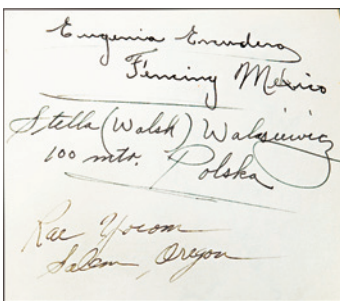 Eugenia Escudero
Fencing México
Stella (Walsh) Walasiewicz
100 mtr. Polska
Rae Yocom
Salem, Oregon